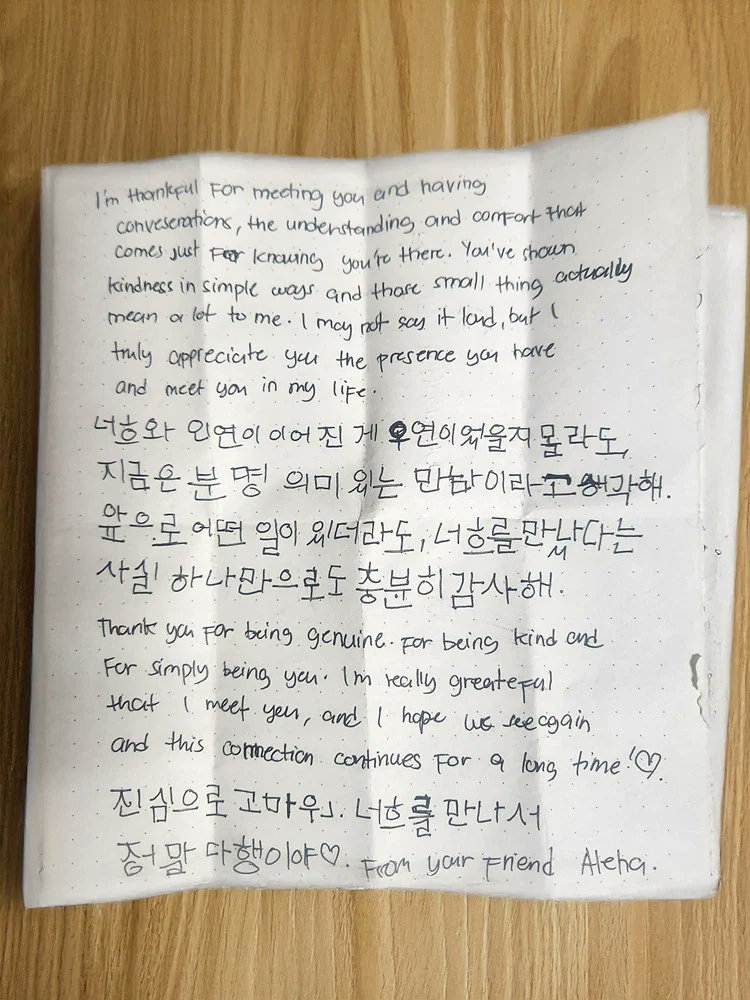 I'm thankful For meeting you and having
conveserations, the understanding and comfort that
comes just For knowing you're there. You've shown
kindness in simple ways and those small thing actually
mean a lot to me. I may not say it loud, but I
truly appreciate you the presence you have
and meet you in my life.
너희와 인연이 이어진 게 우연이었을지 몰라도,
지금은 분명 의미 있는 만남이라고 생각해.
앞으로 어떤 일이 있더라도, 너희를 만났다는
사실 하나만으로도 충분히 감사해.
Thank you For being genuine. For being kind and
For simply being you. I'm really greateful
that I meet you, and I hope we see again
and this connection continues For a long time!♡.
진심으로 고마워. 너희를 만나서
정말 다행이야♡. From your Friend Aleha.